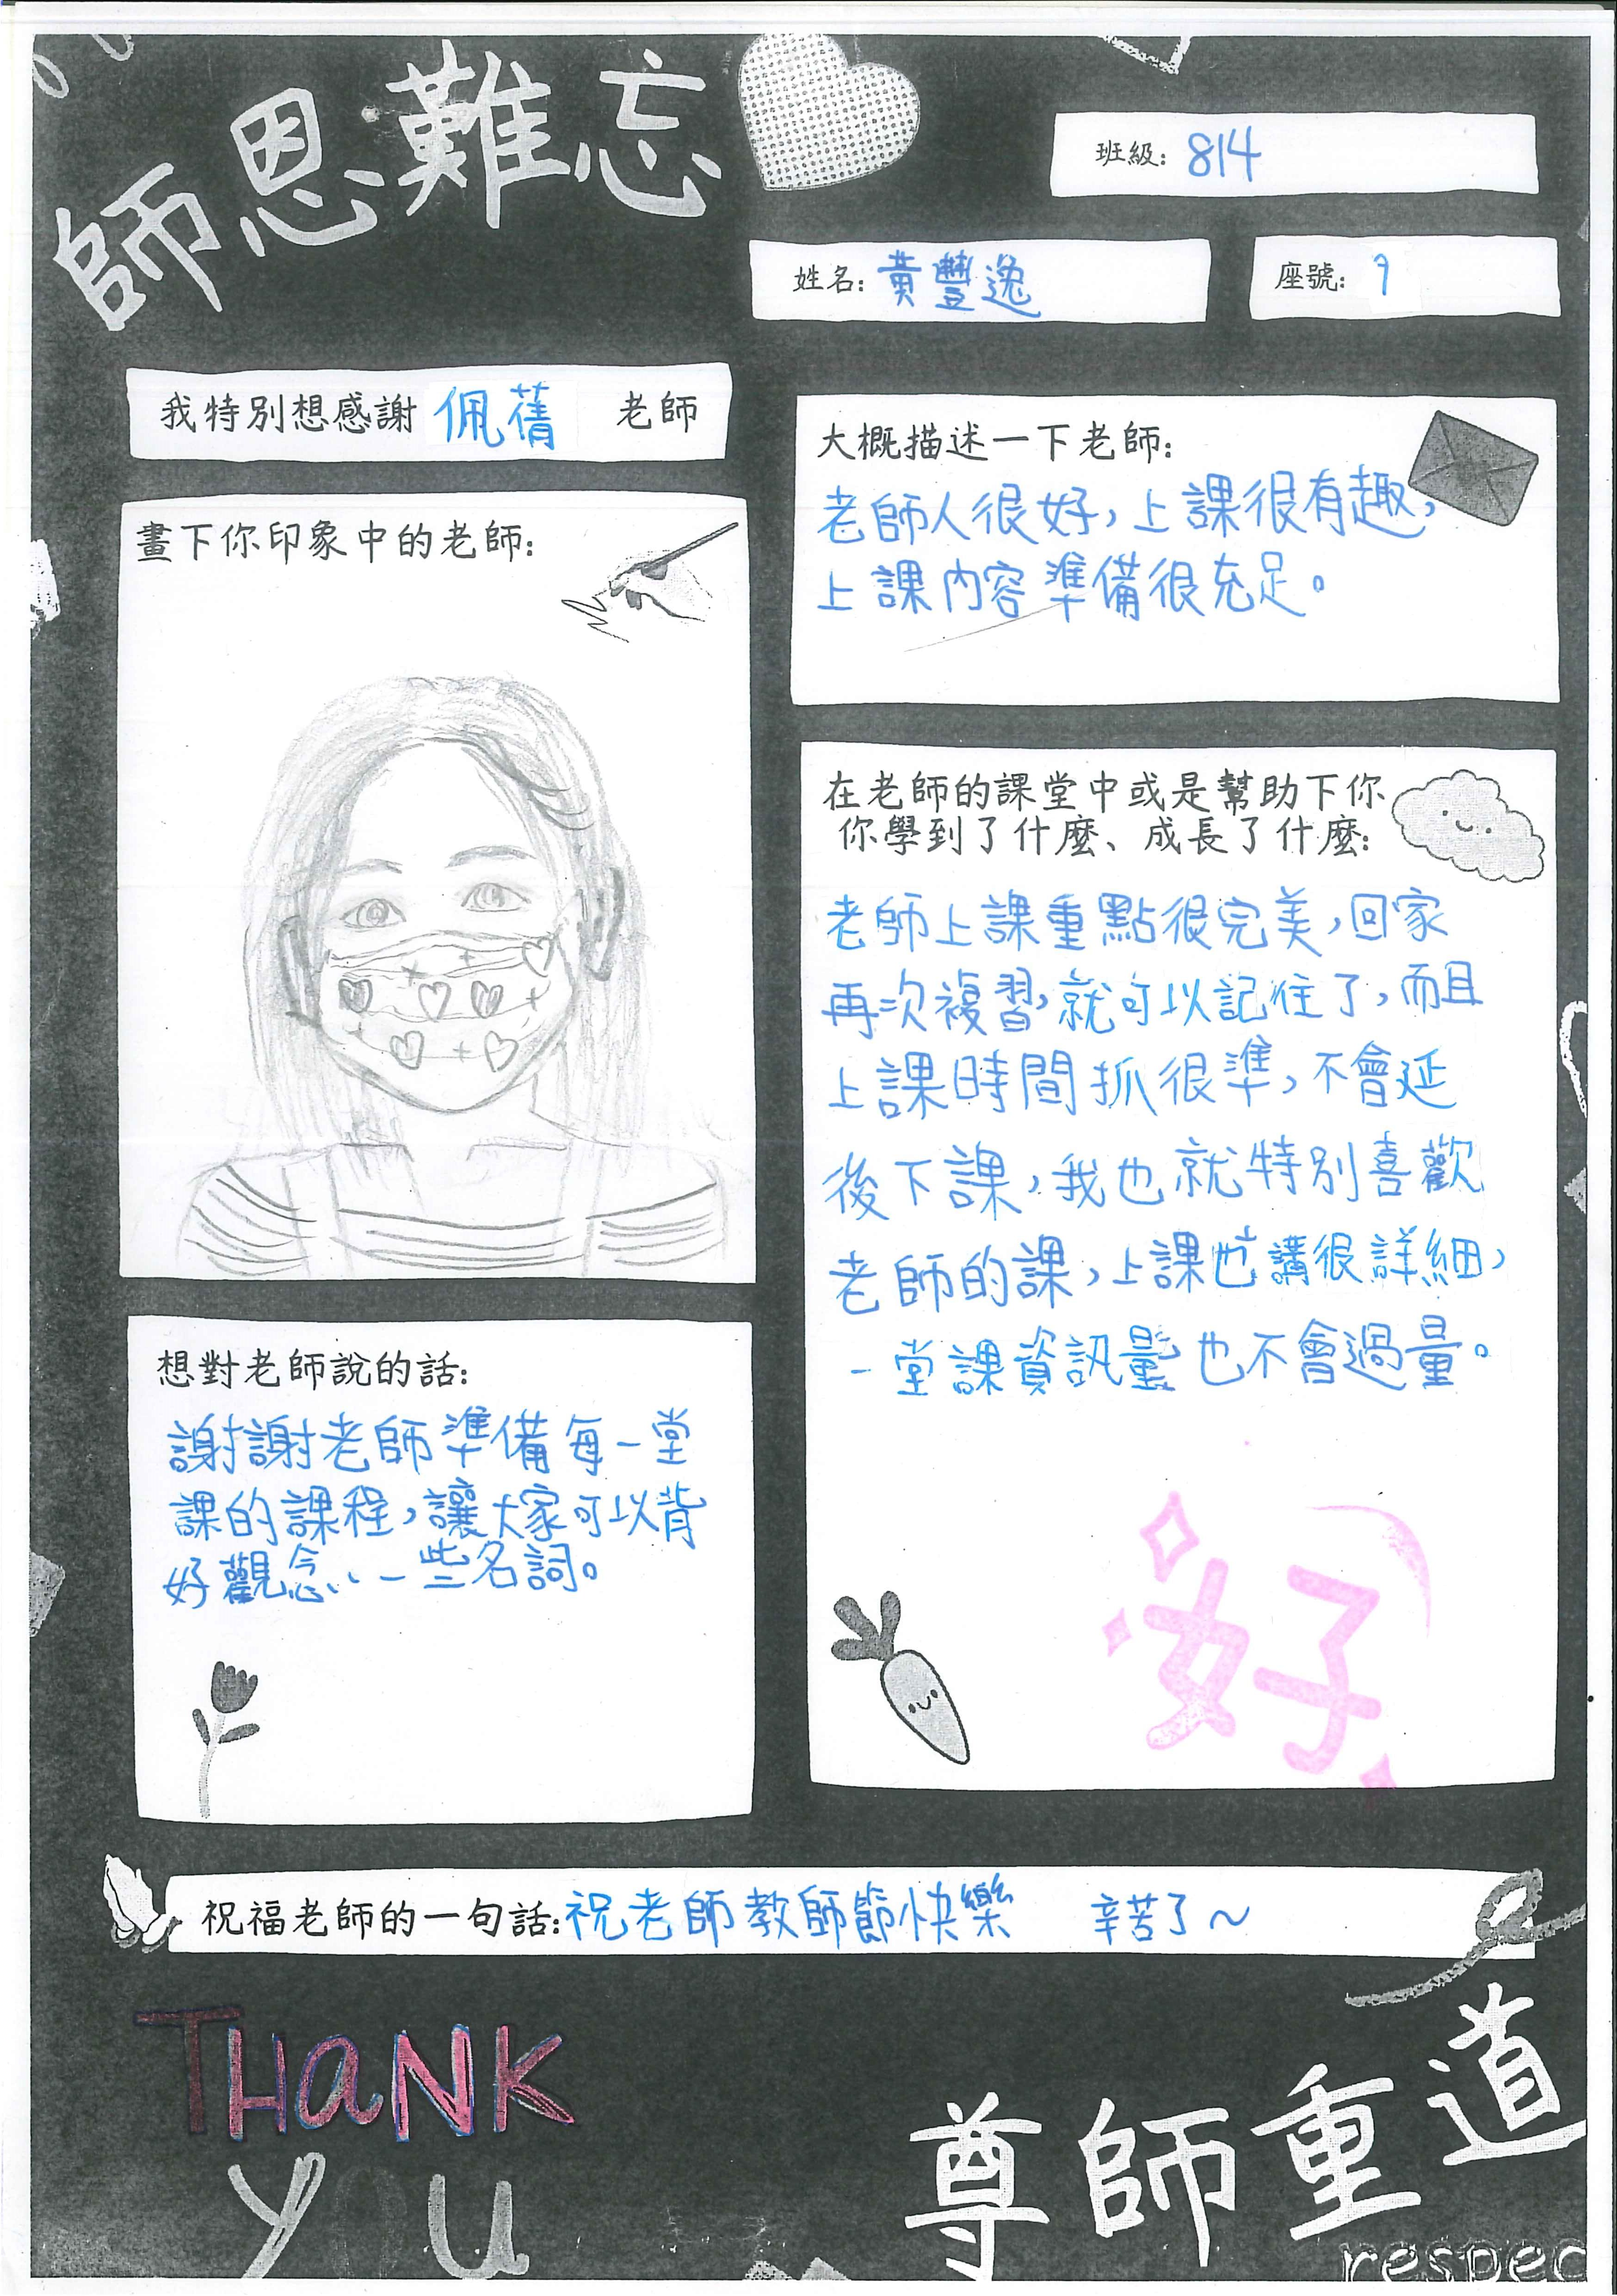 師恩難忘
班級: 814
姓名: 黃豐逸
座號: 9
我特別想感謝 佩蒨 老師
畫下你印象中的老師:
大概描述一下老師:
老師人很好，上課很有趣，
上課內容準備很充足。
在老師的課堂中或是幫助下你
你學到了什麼、成長了什麼:
老師上課重點很完美，回家
再次複習，就可以記住了，而且
上課時間抓很準，不會延
後下課，我也就特別喜歡
老師的課，上課也講很詳細，
一堂課資訊量也不會過量。
好
想對老師說的話:
謝謝老師準備每一堂
課的課程，讓大家可以背
好觀念、一些名詞。
祝福老師的一句話: 祝老師教師節快樂 辛苦了~
THaNK
you
尊師重道
respec